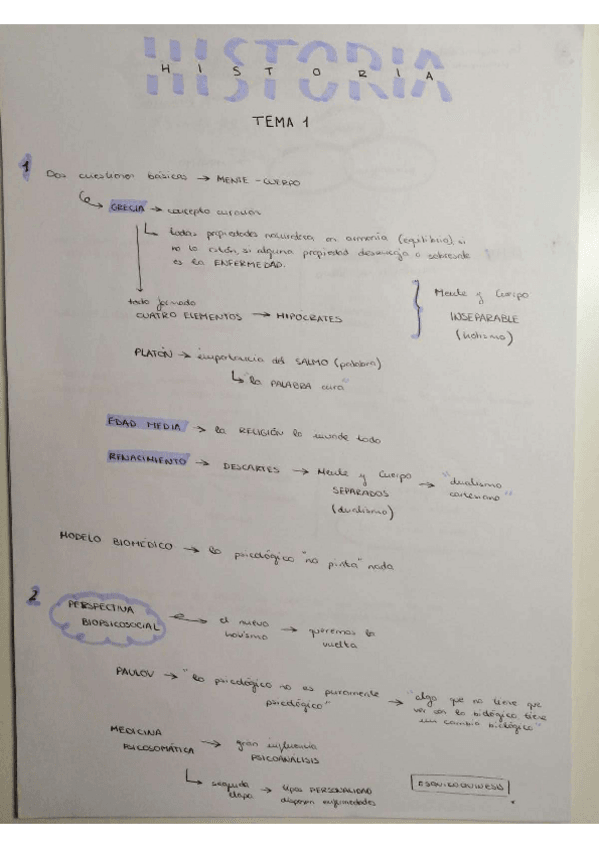 HISTORIA
HISTORIA
TEMA 1
1 Dos cuestiones básicas → MENTE - CUERPO
GRECIA → concepto curación
todas propiedades naturaleza en armonía (equilibrio) si
no lo están, si alguna propiedad descuaja o sobresale
es la ENFERMEDAD.
todo formado
CUATRO ELEMENTOS → HIPÓCRATES
Mente y Cuerpo
INSEPARABLE
(holismo)
PLATÓN → importancia del SALMO (palabra)
"la PALABRA cura"
EDAD MEDIA → la RELIGIÓN lo invade todo
RENACIMIENTO → DESCARTES → Mente y Cuerpo
SEPARADOS
(dualismo)
→ "dualismo
cartesiano"
MODELO BIOMÉDICO → lo psicológico "no pinta" nada
2 PERSPECTIVA
BIOPSICOSOCIAL
el nuevo
→ queremos la
vuelta
PAULOV → "lo psicológico no es puramente
psicológico"
→ "algo que no tiene que
ver con lo biológico tiene
un cambio biológico"
MEDICINA
PSICOSOMÁTICA → gran influencia
PSICOANALISIS
segunda
etapa → tipos PERSONALIDAD
disponen enfermedades